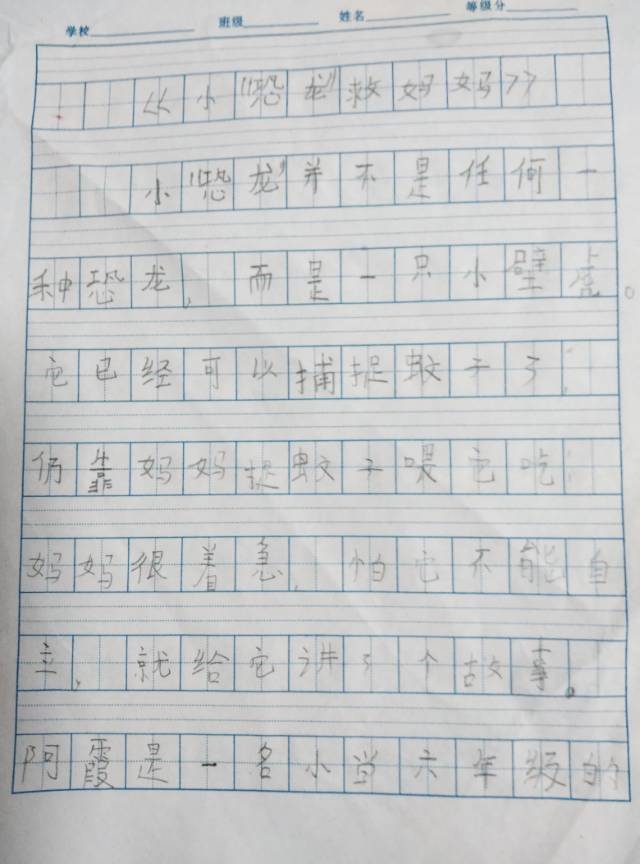 学校 班级 姓名 等级分
《小“恐龙”救妈妈》
小“恐龙”并不是任何一
种恐龙，而是一只小壁虎。
它已经可以捕捉蚊子了，
仍靠妈妈捉蚊子喂它吃，
妈妈很着急，怕它不能自
主，就给它讲了个故事。
阿霞是一名小学六年级的